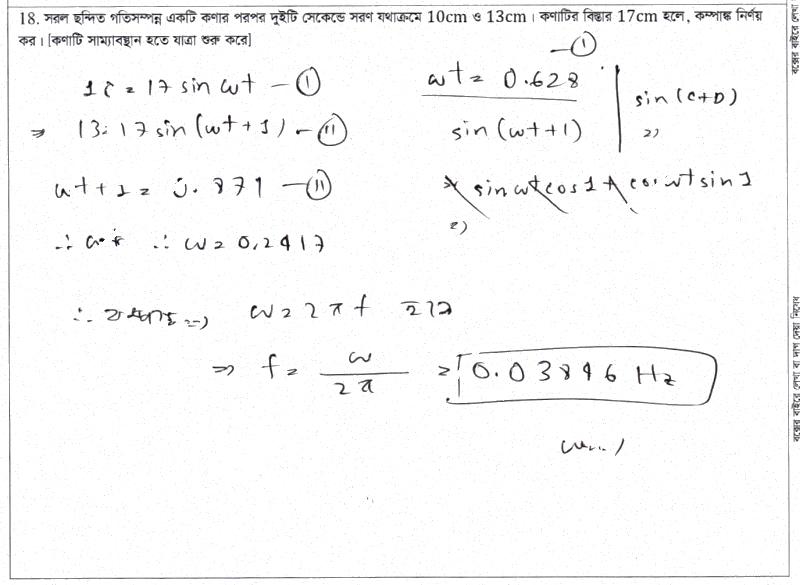 18. সরল ছন্দিত গতিসম্পন্ন একটি কণার পরপর দুইটি সেকেন্ডে সরণ যথাক্রমে 10cm ও 13cm। কণাটির বিস্তার 17cm হলে, কম্পাঙ্ক নির্ণয়
কর। [কণাটি সাম্যাবস্থান হতে যাত্রা শুরু করে]
10 = 17 sin ωt - (i)
⇒ 13 = 17 sin(ωt + 1) - (ii)
ωt + 1 = 0.871 - (ii)
∴ ω = 0.2417
- (i)
ωt = 0.628
sin (ωt + 1)
sin ωt cos 1 + cos ωt sin 1
sin (C+D)
∴ ω = 2πf
⇒ f = ω/2π = 0.03846 Hz
বক্সের বাইরে লেখা বা দাগ দেয়া নিষেধ
বক্সের বাইরে লেখা